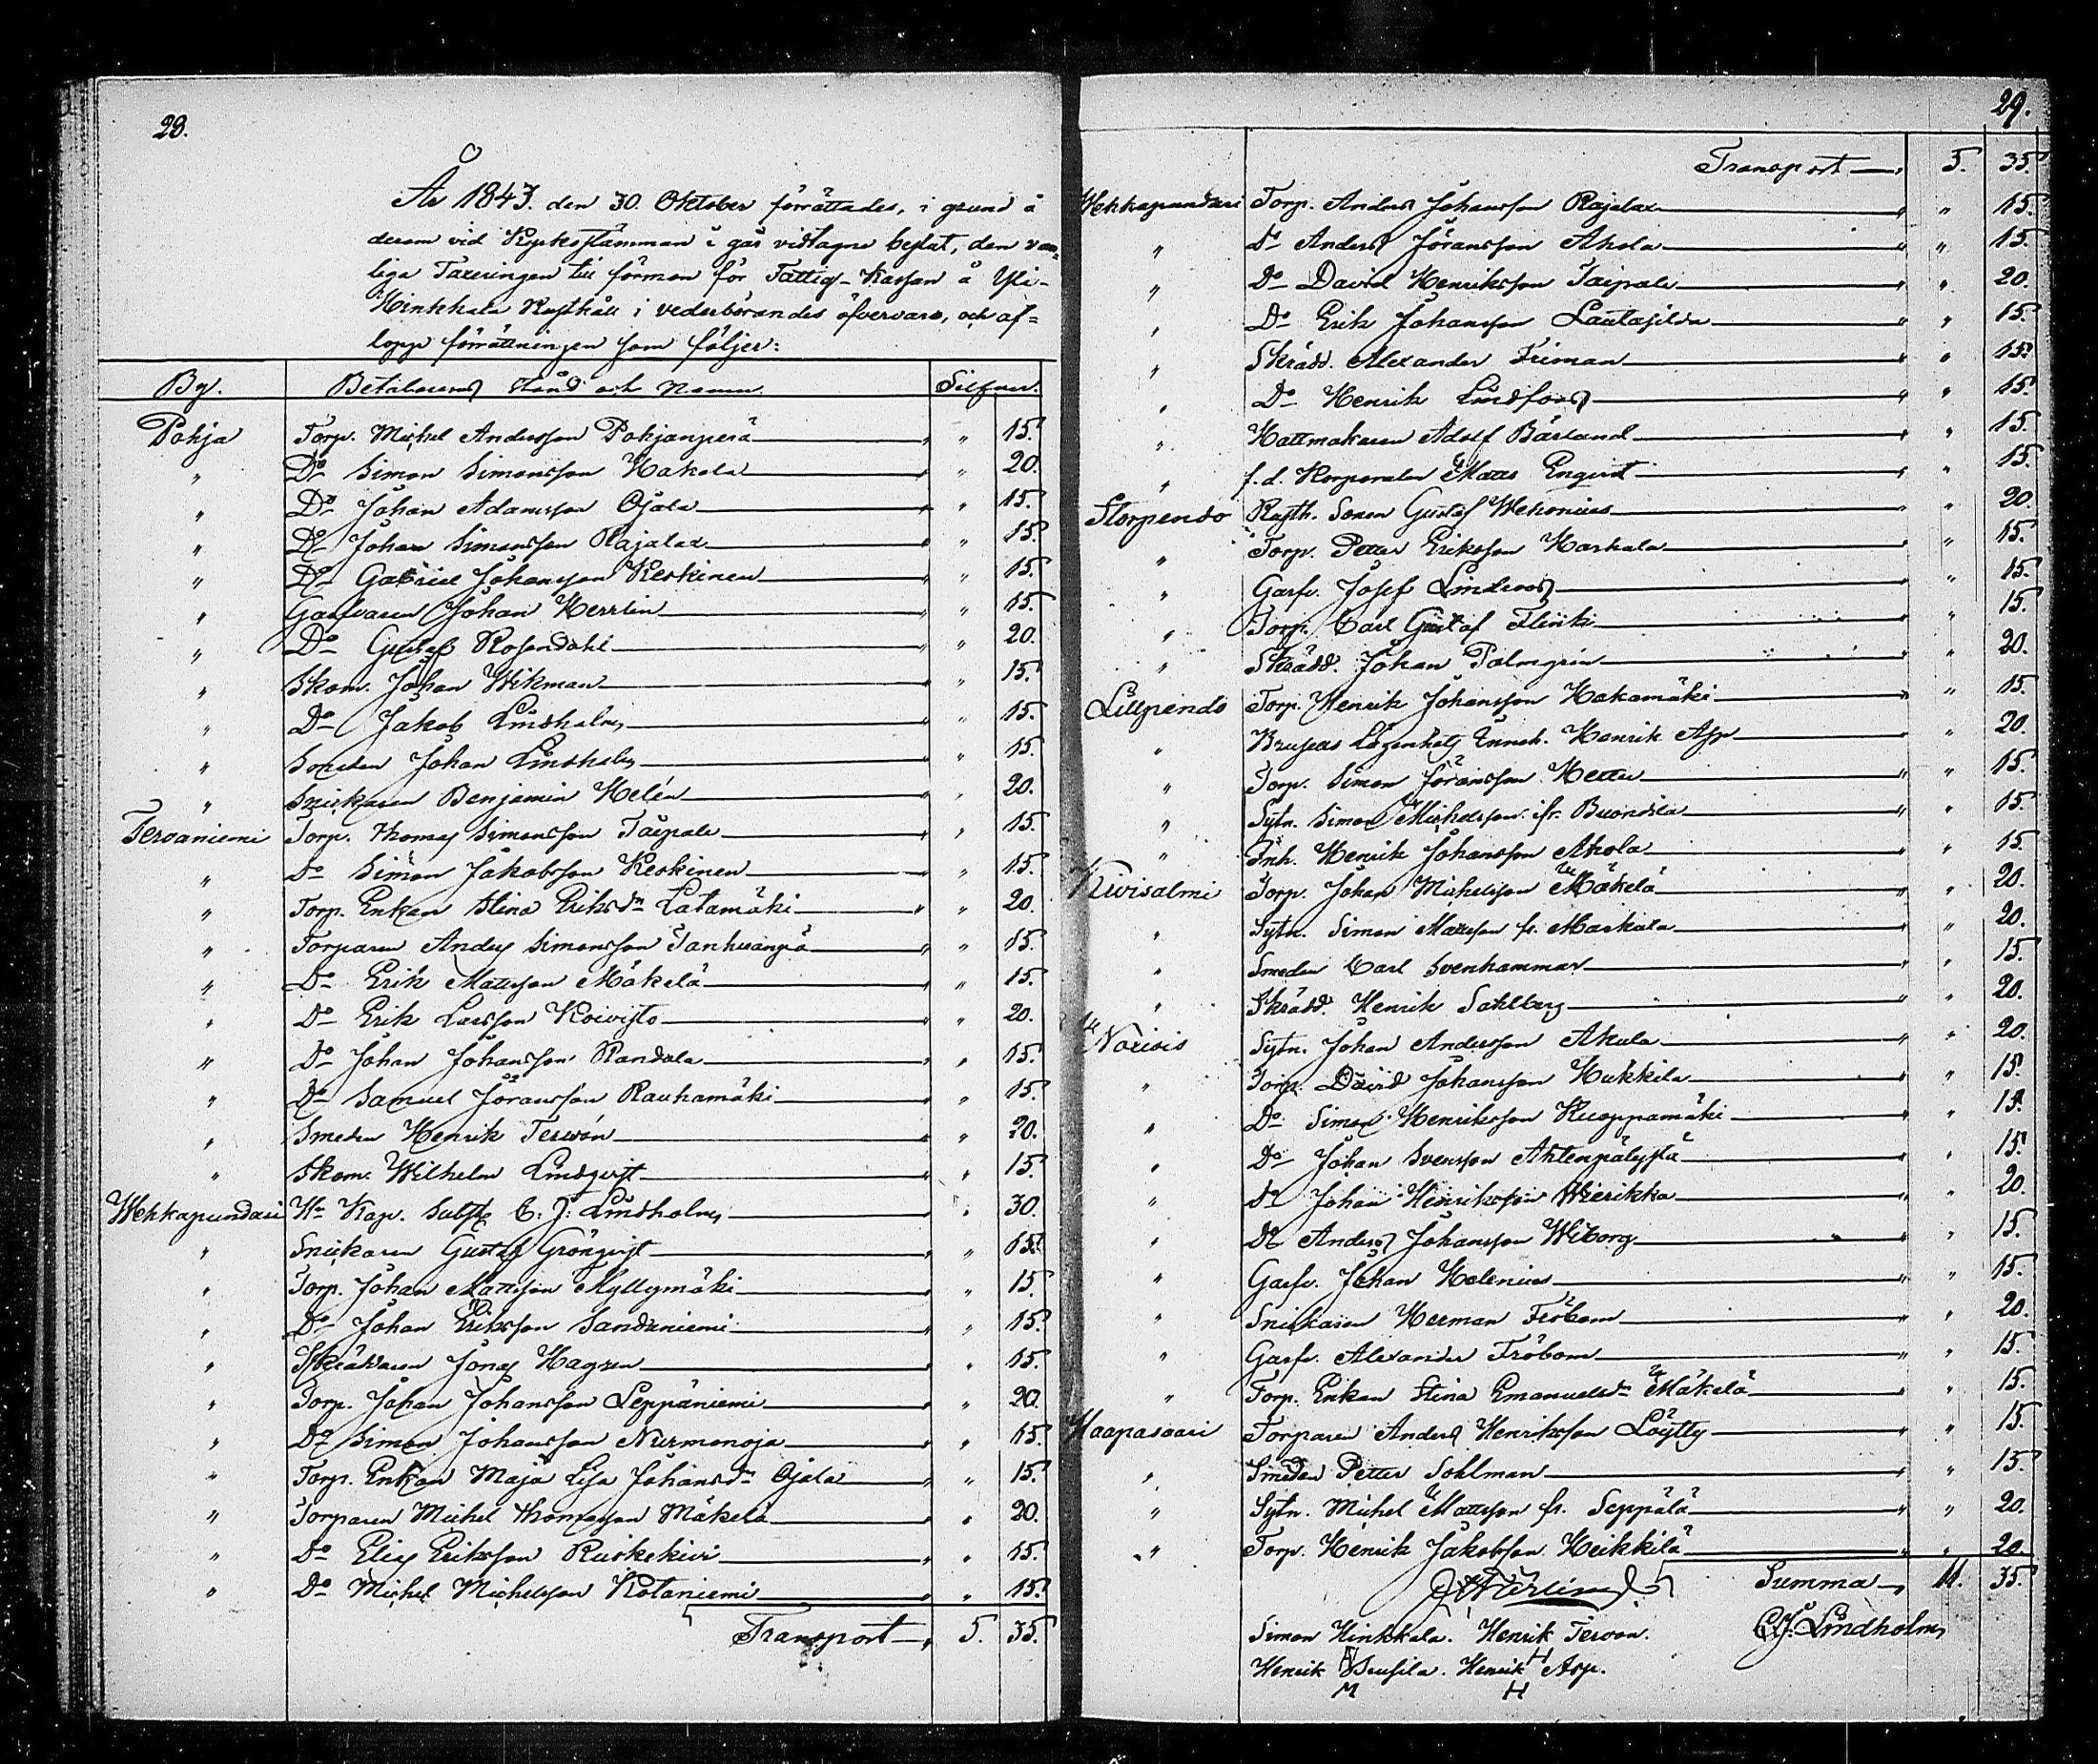 28.
År 1843. den 30. Oktober förrättades, i grund å
derom vid Kyrkostämman i går vidtagne beslut, den van=
liga Taxeringen till förmon för Fattig-Kassan å Yli-
Hinkkala Rusthåll i vederbörandes öfvervaro, och af=
lopp förrättningen som följer:
By. Betalarens stånd och namn. Silfver.
Pohja Torp. Michel Andersson Pohjanperä " 15.
" Do Simon Simonsson Hakala " 20.
" Do Johan Adamsson Ojala " 15.
" Do Johan Simonsson Rajalax " 15.
" Do Gabriel Johansson Keskinen " 15.
" Garfvaren Johan Herrlin " 15.
" Do Gustaf Rosendahl " 20.
" Skom. Johan Wikman " 15.
" Do Jakob Lindholm " 15.
" Johan Lindholm " 15.
" Snickaren Benjamin Helén " 20.
Tervaniemi Torp. Thomas Simonsson Taipale " 15.
" Do Simon Jakobsson Keskinen " 15.
" Torp. Enkan Stina Eriksdr Latamäki " 20.
" Torparen Anders Simonsson Tanhuanpä " 15.
" Do Erik Mattsson Mäkelä " 15.
" Do Erik Larsson Koivisto " 20.
" Do Johan Johansson Randala " 15.
" Do Samuel Göransson Rauhamäki " 15.
" Smeden Henrik Tervón " 20.
" Skom. Wilhelm Lindqvist " 15.
Wehkapundari Hr Kap. Subste C. J. Lindholm " 30.
" Snickaren Gustaf Grönqvist " 15.
" Torp. Johan Mattsson Myllymäki " 15.
" Do Johan Eriksson Sandaniemi " 15.
" Skräddaren Jonas Hagren " 15.
" Torp. Johan Johansson Leppäniemi " 20.
" Do Simon Johansson Nurmenoja " 15.
" Torp. Enkan Maja Lisa Johansdr Ojala " 15.
" Torparen Michel Thomasson Mäkelä " 20.
" Do Elias Eriksson Ruskekivi " 15.
" Do Michel Michelsson Kotaniemi " 15.
Transport 5. 35.
29.
Transport 5. 35.
Wehkapundari Torp. Anders Johansson Rajalax " 15.
" Do Anders Göransson Ahola " 15.
" Do David Henriksson Taipale " 20.
" Do Erik Johansson Lautasilda " 15.
" Skrädd. Alexander Friman " 15.
" Do Henrik Lindfors " 15.
" Hattmakaren Adolf Bärlund " 15.
" f. d. Korporalen Matts Engvist " 15.
Storpendo Rusth. Sonen Gustaf Wehonius " 20.
" Torp. Petter Eriksson Harkala " 15.
" Garfv. Josef Lindroos " 15.
" Torp. Carl Gustaf Flinki " 15.
" Skrädd. Johan Palmgrén " 20.
Lillpendo Torp. Henrik Johansson Hakamäki " 15.
" Lägenhets Inneh. Henrik Asp " 20.
" Torp. Simon Göransson Hettu " 15.
" Sytn. Simon Michelsson fr. " 15.
" Inh. Henrik Johansson Ahola " 15.
Kivisalmi Torp. Johan Michelsson Mäkelä " 20.
" Sytn. Simon Mattsson fr. Markala " 20.
" Smeden Carl Svenhammar " 15.
" Skrädd. Henrik Sahlberg " 20.
Norisis Sytn. Johan Andersson Ahala " 20.
" Torp. David Johansson Hukkila " 15.
" Do Simon Henriksson Kuoppamäki " 15.
" Do Johan Svensson Ahtenpälystä " 15.
" Do Johan Henriksson Wierikka " 20.
" Do Anders Johansson Wiborg " 15.
" Garfv. Johan Helenius " 15.
" Snickaren Herman Fröbom " 20.
" Garfv. Alexander Fröbom " 15.
" Torp. Enkan Stina Emanuelsdr Mäkelä " 15.
Haapasaari Torparen Anders Henriksson Löytty " 15.
" Smeden Petter Sohlman " 15.
" Sytn. Michel Mattsson fr. Seppälä " 20.
" Torp. Henrik Jakobsson Heikkilä " 20.
Summa 11. 35.
Simon Hinkkala. Henrik Tervon. C. J. Lindholm
Henrik Henrik Asp.